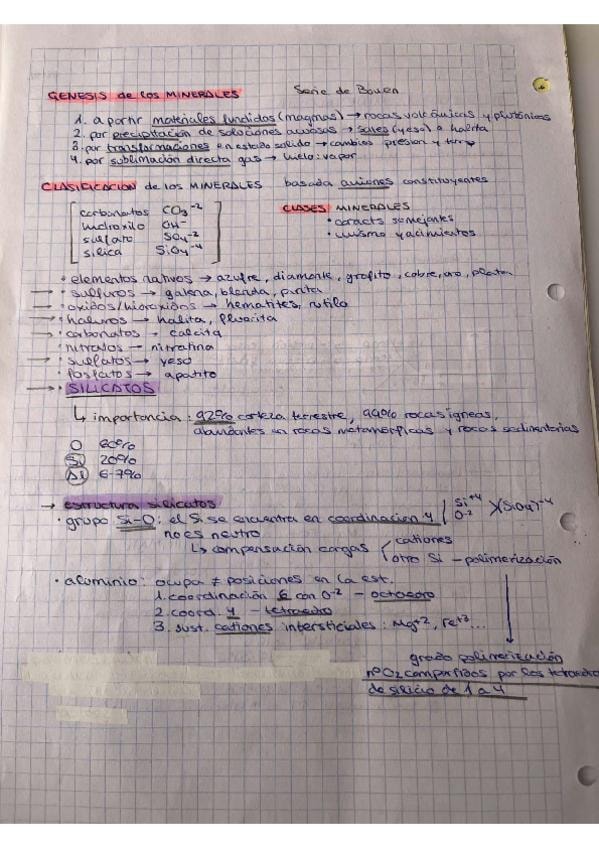 GENESIS de los MINERALES Serie de Bowen
1. a partir materiales fundidos (magmas) → rocas volcánicas y plutónicas
2. por precipitación de soluciones acuosas → sales (yeso) o halita
3. por transformaciones en estado solido → cambios presion y temp
4. por sublimación directa gas → hielo: vapor
CLASIFICACION de los MINERALES basada aniones constituyentes
carbonatos CO3-2
hidroxilo OH-
sulfato SO4-2
silica SiO4-4
CLASES MINERALES
• caracts semejantes
• mismo yacimientos
• elementos nativos → azufre, diamante, grafito, cobre, oro, plata
→ • sulfuros → galena, blenda, pirita
→ • oxidos/hidroxidos → hematites, rutilo
→ • haluros → halita, fluorita
→ • carbonatos → calcita
• nitratos — nitratina
→ • sulfatos → yeso
• fosfatos → apatito
→ • SILICATOS
↳ importancia: 92% corteza terrestre, 99% rocas igneas,
abundantes en rocas metamorficas y rocas sedimentarias
O 60%
Si 20%
Al 6-7%
→ estructura silicatos
• grupo Si-O: el Si se encuentra en coordinacion 4 Si+4 O-2 (SiO4)-4
no es neutro
↳ compensación cargas cationes
otro Si - polimerización
• aluminio: ocupa ≠ posiciones en la est.
1. coordinación 6 con O-2 - octaedro
2. coord. 4 - tetraedro
3. sust. cationes intersticiales: Mg+2, Fe+3...
grado polimerización
nº O2 compartidos por los tetraedro
de silicio de 1 a 4